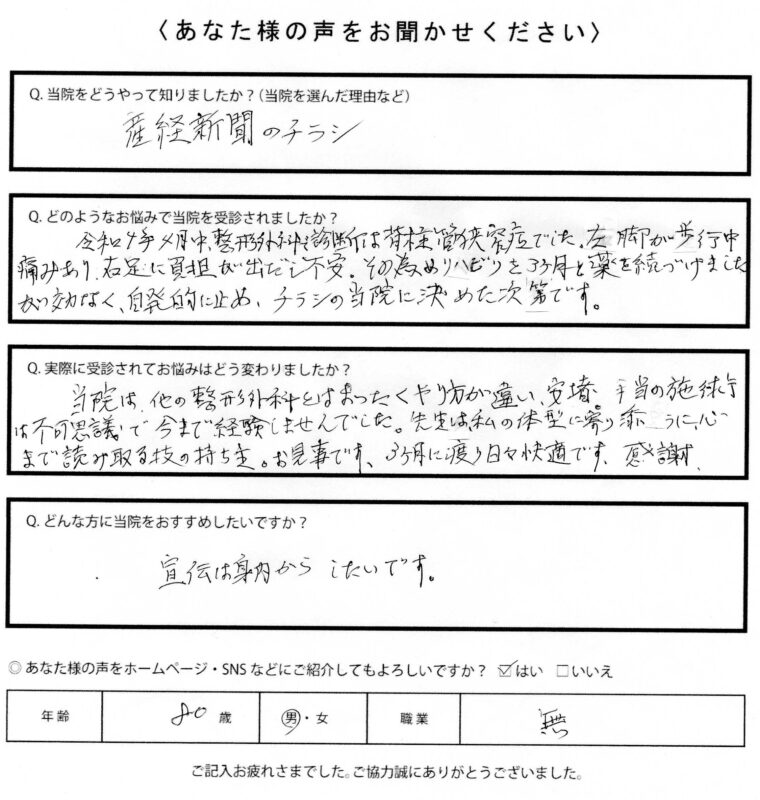 〈あなた様の声をお聞かせください〉
Q. 当院をどうやって知りましたか？（当院を選んだ理由など）
産経新聞のチラシ
Q. どのようなお悩みで当院を受診されましたか？
令和4年4月中、整形外科で診断は脊柱管狭窄症でした。左脚が歩行中
痛みあり、右足に負担が出だし不安。その為めリハビリを3ヶ月と薬を続づけました
が効なく、自発的に止め、チラシの当院に決めた次第です。
Q. 実際に受診されてお悩みはどう変わりましたか？
当院は、他の整形外科とはまったくやり方が違い、安堵。手当の施術
は不可思議で今まで経験しませんでした。先生は私の体型に寄り添うに、心
まで読み取る技の持ち主。お見事です、3ヶ月に渡り日々快適です、感謝、
Q. どんな方に当院をおすすめしたいですか？
宣伝は身内からしたいです。
◎あなた様の声をホームページ・SNSなどにご紹介してもよろしいですか？ ☑はい □いいえ
年齢 80歳 男・女 職業 無
ご記入お疲れさまでした。ご協力誠にありがとうございました。